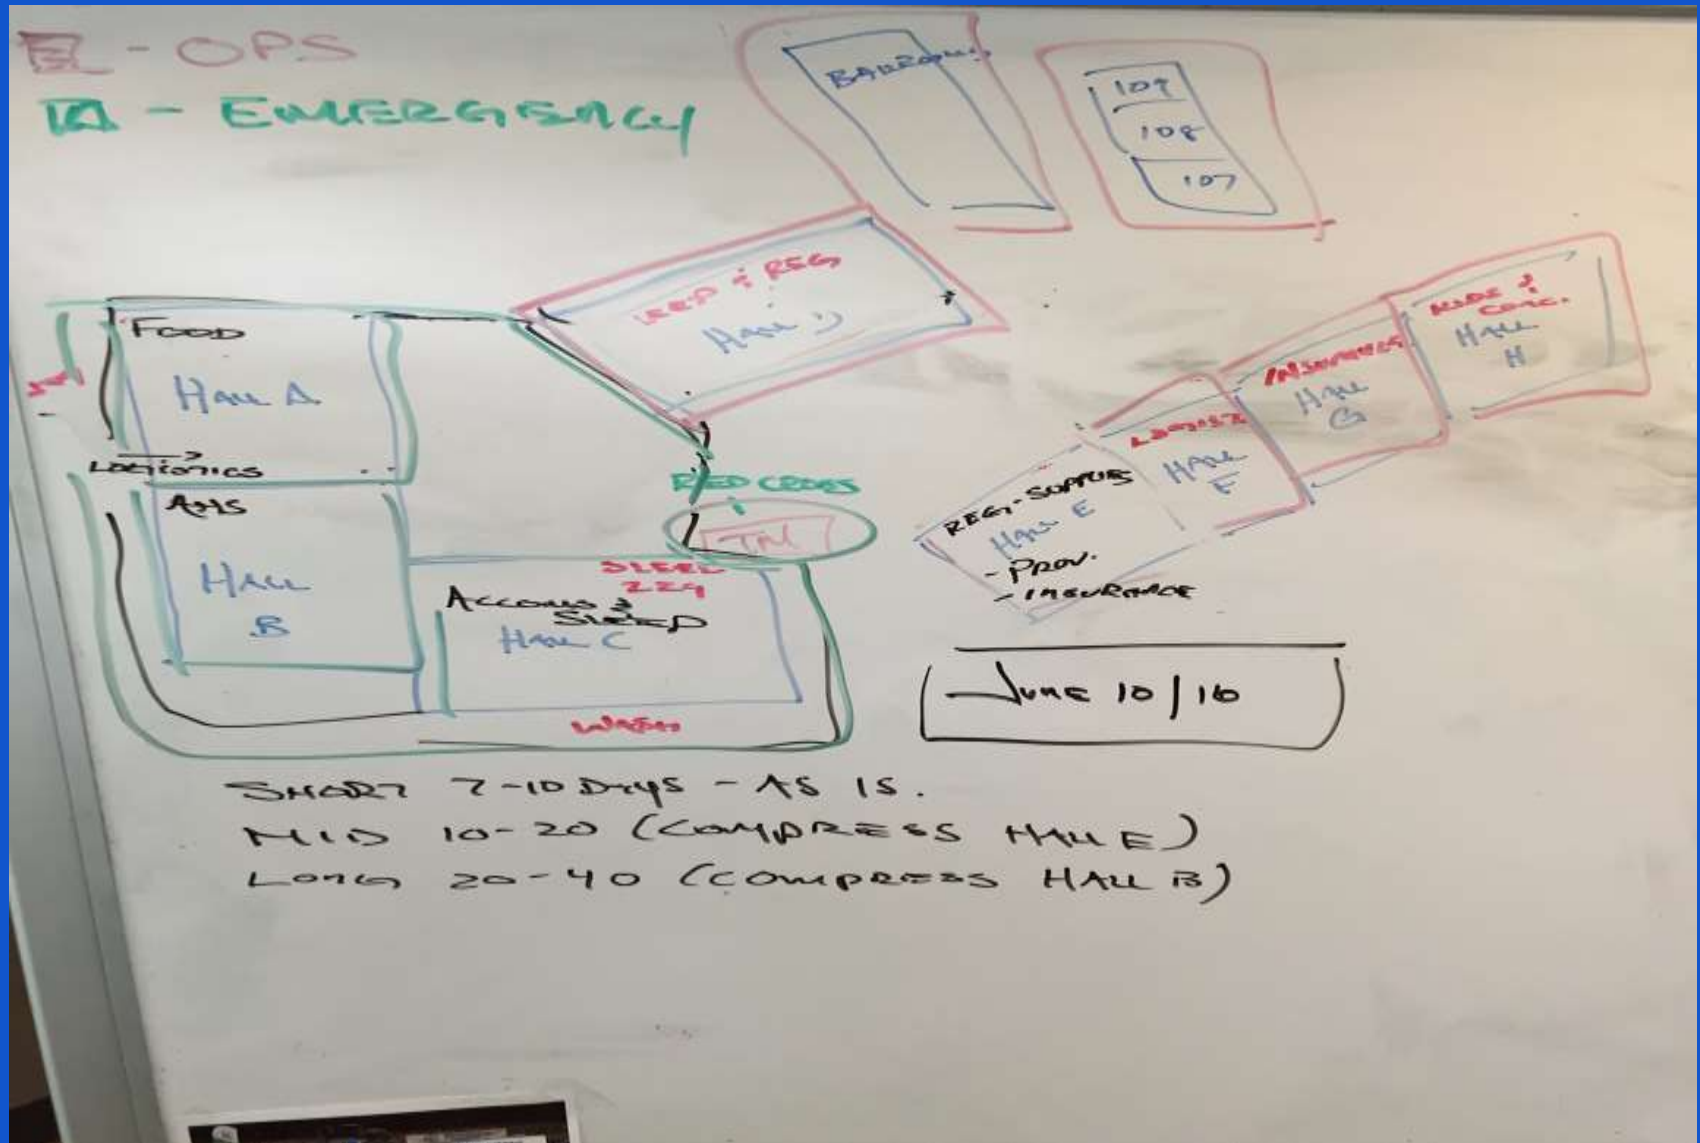 - OPS
- EMERGENCY
BALLROOMS
109
108
107
& REG
HALL D
FOOD
HALL A
LOGISTICS
AHS
HALL
B
RED CROSS
TM
SLEEP
229
ACCOMS &
SLEEP
HALL C
WASH
REG. - SUPPLIES
HALL E
- PROV.
- INSURANCE
HALL
F
INSURANCE
HALL
G
KIDS &
CONC.
HALL
H
JUNE 10/16
SHORT 7-10 DAYS - AS IS.
MID 10-20 (COMPRESS HALL E)
LONG 20-40 (COMPRESS HALL B)